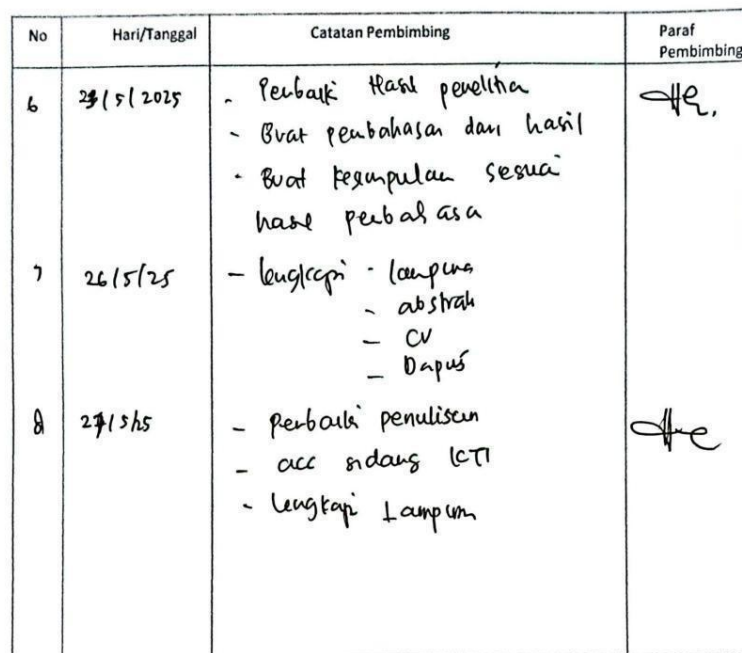 No Hari/Tanggal Catatan Pembimbing Paraf
Pembimbing
6 23/5/2025 - Perbaiki Hasil penelitia
- Buat pembahasan dari hasil
- Buat kesimpulan sesuai
hasil pembahasa
7 26/5/25 - lengkapi - lampiran
- abstrak
- CV
- Dapus
8 27/5/25 - Perbaiki penulisan
- acc sidang KTI
- lengkapi Lampiran